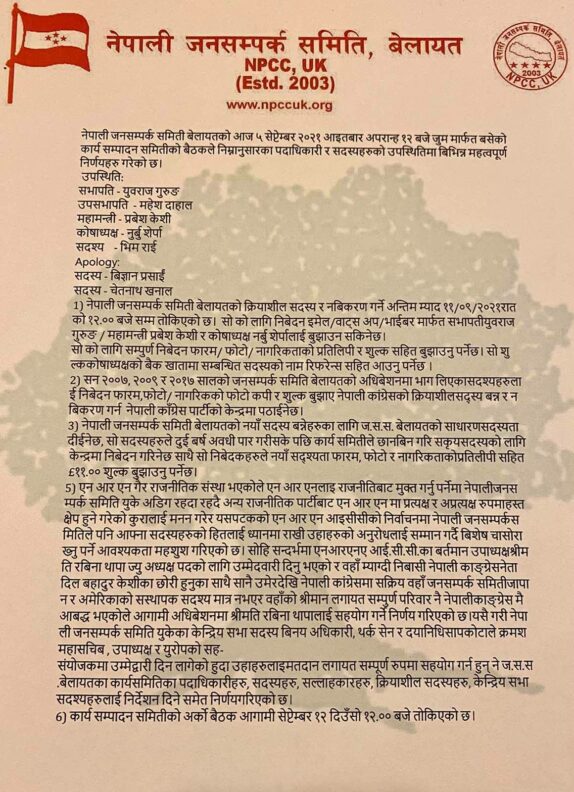 नेपाली जनसम्पर्क समिति, बेलायत
NPCC, UK
(Estd. 2003)
www.npccuk.org
नेपाली जनसम्पर्क समिति, बेलायत
2003
NPCC, UK
नेपाली जनसम्पर्क समिती बेलायतको आज ५ सेप्टेम्बर २०२१ आइतबार अपरान्ह १२ बजे जुम मार्फत बसेको
कार्य सम्पादन समितीको बैठकले निम्नानुसारका पदाधिकारी र सदस्यहरुको उपस्थितिमा बिभिन्न महत्वपूर्ण
निर्णयहरु गरेको छ।
उपस्थिति:
सभापति - युवराज गुरुङ
उपसभापति - महेश दाहाल
महामन्त्री - प्रबेश केशी
कोषाध्यक्ष - नुर्बु शेर्पा
सदश्य - भिम राई
Apology:
सदस्य - बिज्ञान प्रसाईं
सदस्य - चेतनाथ खनाल
1) नेपाली जनसम्पर्क समिती बेलायतको क्रियाशील सदस्य र नबिकरण गर्ने अन्तिम म्याद ११/०९/२०२१रात
को १२.०० बजे सम्म तोकिएको छ। सो को लागि निबेदन इमेल/वाट्स अप/भाईबर मार्फत सभापतीयुवराज
गुरुङ / महामन्त्री प्रबेश केशी र कोषाध्यक्ष नर्बु शेर्पालाई बुझाउन सकिनेछ।
सो को लागि सम्पुर्ण निबेदन फारम/ फोटो/ नागरिकताको प्रतिलिपी र शुल्क सहित बुझाउनु पर्नेछ। सो शु
ल्ककोषाध्यक्षको बैक खातामा सम्बन्धित सदस्यको नाम रिफरेन्स सहित आउनु पर्नेछ ।
2) सन २००७, २००९ र २०१७ सालको जनसम्पर्क समिति बेलायतको अधिबेशनमा भाग लिएकासदश्यहरुला
ई निबेदन फारम,फोटो/ नागरिकको फोटो कपी र शुल्क बुझाए नेपाली कांग्रेसको क्रियाशीलसद्स्य बन्न र न
बिकरण गर्न नेपाली काँग्रेस पार्टीको केन्द्रमा पठाईनेछ।
3) नेपाली जनसम्पर्क समिती बेलायतको नयाँ सदश्य बन्नेहरुका लागि ज.स.स. बेलायतको साधारणसदश्यता
दीईनेछ, सो सदस्यहरुले दुई बर्ष अवधी पार गरीसके पछि कार्य समितीले छानबिन गरि सकृयसदश्यको लागि
केन्द्रमा निबेदन गरिनेछ साथै सो निबेदकहरुले नयाँ सद्श्यता फारम, फोटो र नागरिकताकोप्रतिलीपी सहित
£११.०० शुल्क बुझाउनु पर्नेछ।
5) एन आर एन गैर राजनीतिक संस्था भएकोले एन आर एनलाइ राजनीतिबाट मुक्त गर्नु पर्नेमा नेपालीजनस
म्पर्क समिति युके अडिग रहदा रहदै अन्य राजनीतिक पार्टीबाट एन आर एन मा प्रत्यक्ष र अप्रत्यक्ष रुपमाहस्त
क्षेप हुने गरेको कुरालाई मनन गरेर यसपटकको एन आर एन आइसीसीको निर्वाचनमा नेपाली जनसम्पर्कस
मितिले पनि आफ्ना सदस्यहरुको हितलाई ध्यानमा राखी उहाहरुको अनुरोधलाई सम्मान गर्दै बिशेष चासोरा
ख्नु पर्ने आवश्यकता महशुश गरिएको छ। सोहि सन्दर्भमा एनआरएनए आई.सी.सी.का बर्तमान उपाध्यक्षश्रीम
ति रबिना थापा ज्यु अध्यक्ष पदको लागी उम्मेदवारी दिनु भएको र वहाँ म्याग्दी निबासी नेपाली काङ्ग्रेसनेता
दिल बहादुर केशीका छोरी हुनुका साथै सानै उमेरदेखि नेपाली कांग्रेसमा सक्रिय वहाँ जनसम्पर्क समितीजापा
न र अमेरिकाको सस्थापक सदश्य मात्र नभएर वहाँको श्रीमान लगायत सम्पूर्ण परिवार नै नेपालीकाङ्ग्रेस मै
आबद्ध भएकोले आगामी अधिबेशनमा श्रीमति रबिना थापालाई सहयोग गर्ने निर्णय गरिएको छ।यसै गरी नेपा
ली जनसम्पर्क समिति युकेका केन्द्रिय सभा सदस्य बिनय अधिकारी, थर्क सेन र दयानिधिसापकोटाले क्रमश
महासचिब , उपाध्यक्ष र युरोपको सह-
संयोजकमा उम्मेद्वारी दिन लागेको हुदा उहाहरुलाईमतदान लगायत सम्पूर्ण रुपमा सहयोग गर्न हुन् ने ज.स.स
.बेलायतका कार्यसमितिका पदाधिकारीहरु, सदस्यहरु, सल्लाहकारहरु, क्रियाशील सदस्यहरु, केन्द्रिय सभा
सदश्यहरुलाई निर्देशन दिने समेत निर्णयगरिएको छ।
6) कार्य सम्पादन समितीको अर्को बैठक आगामी सेप्टेम्बर १२ दिउँसो १२.०० बजे तोकिएको छ।